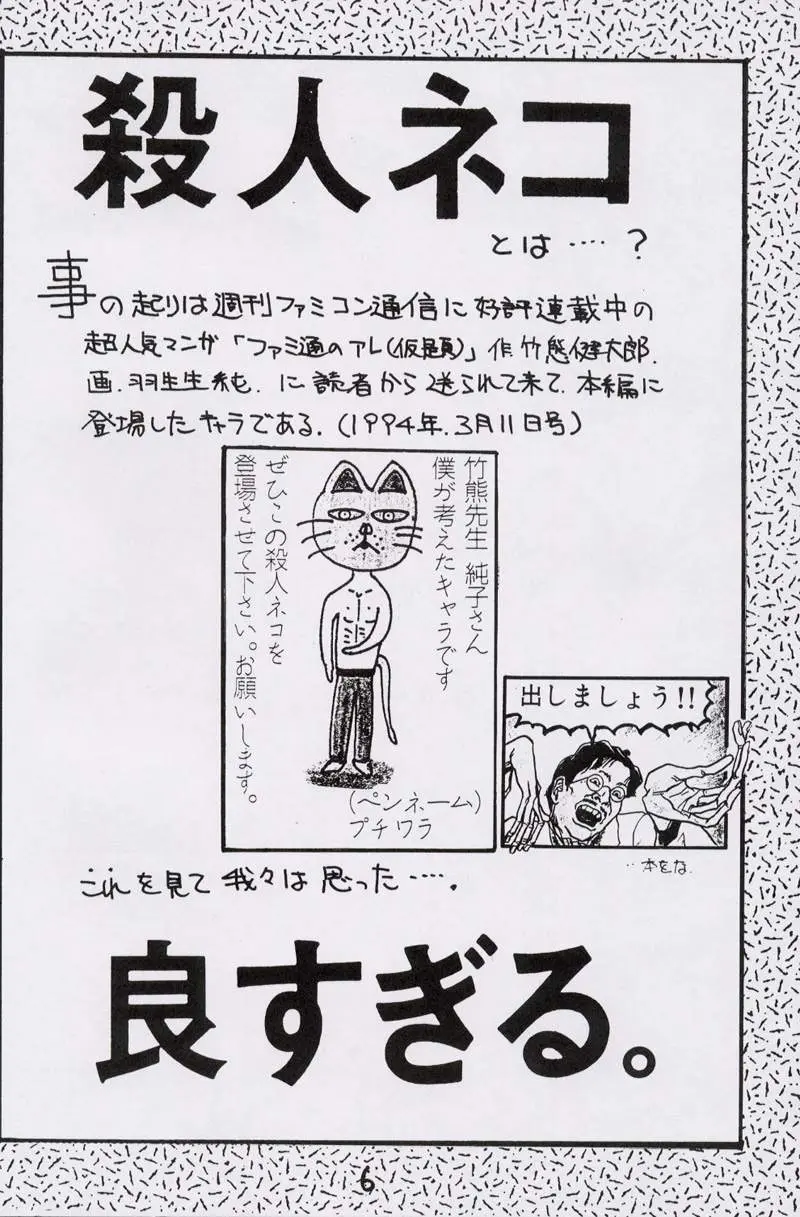 殺人ネコ
とは‥‥?
事の起りは週刊ファミコン通信に好評連載中の
超人気マンガ「ファミ通のアレ(仮題)」作.竹熊健太郎.
画.羽生生純.に読者から送られて来て、本編に
登場したキャラである.(1994年.3月11日号)
竹熊先生 純子さん
僕が考えたキャラです
ぜひこの殺人ネコを
登場させて下さい。お願いします。
(ペンネーム)
プチワラ
出しましょう!!
‥本をな
これを見て我々は思った‥‥.
良すぎる。
6